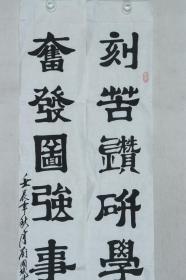 刻苦鑽研學
奮發圖強事
壬辰年秋月